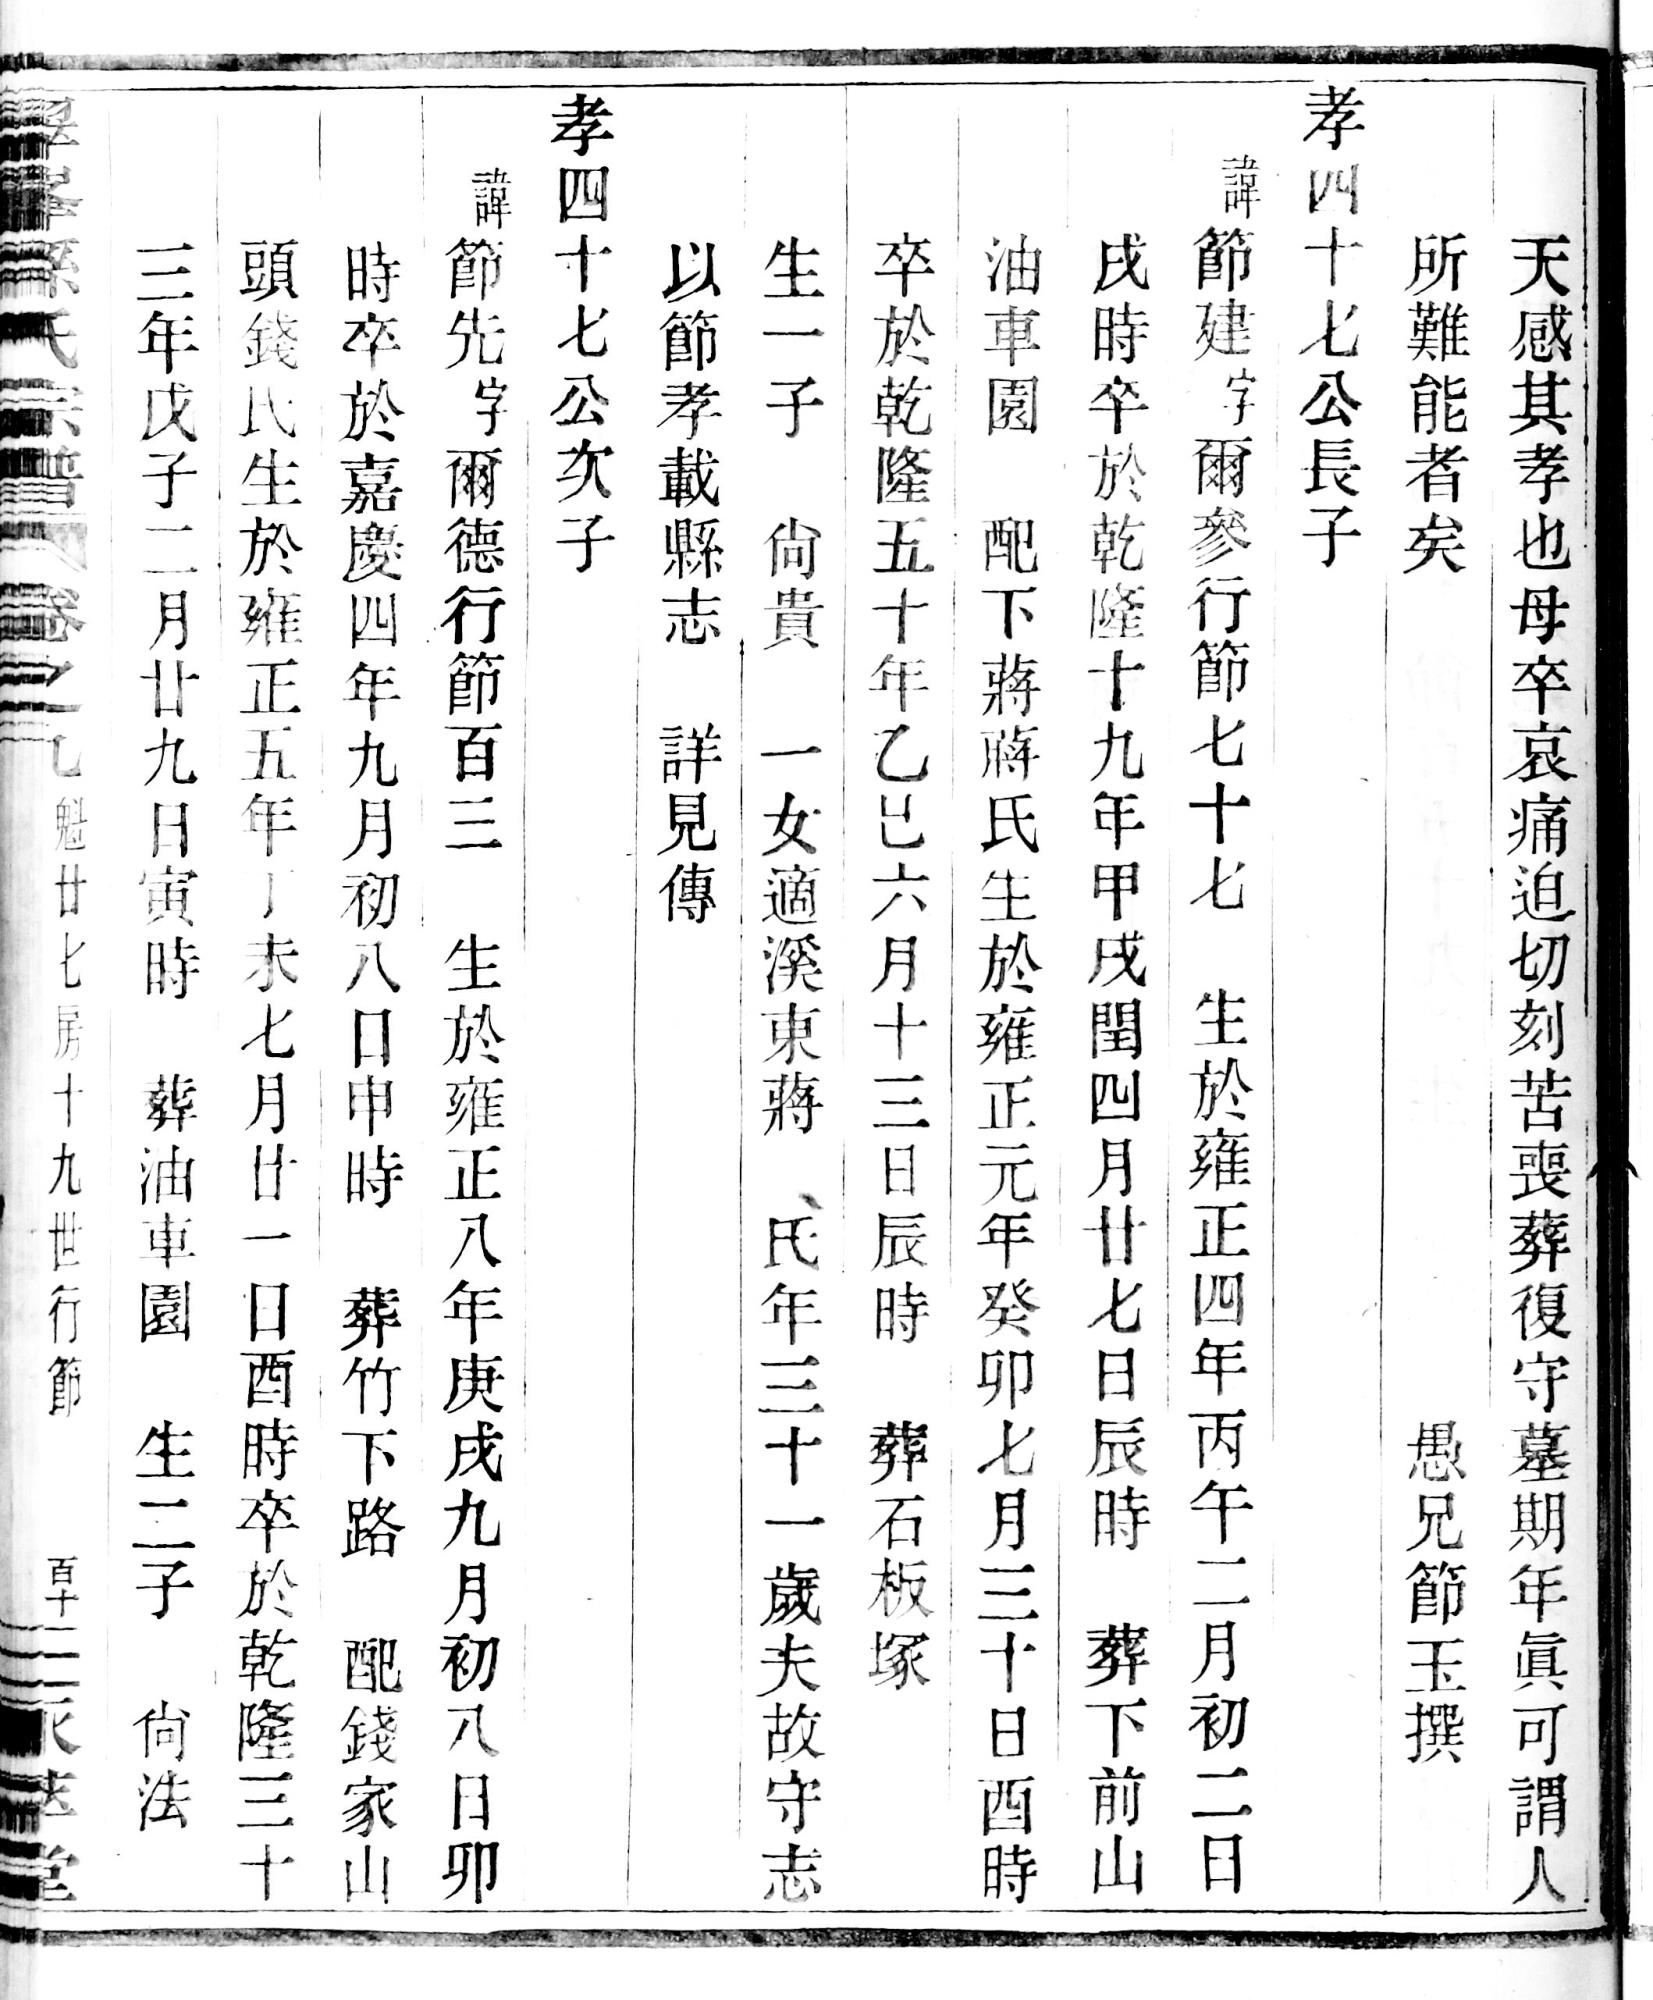 天感其孝也母卒哀痛迫切刻苦喪葬復守墓期年眞可謂人
所難能者矣　愚兄節玉撰
孝四十七公長子
諱節建字爾參行節七十七　生於雍正四年丙午二月初二日
戌時卒於乾隆十九年甲戌閏四月廿七日辰時　葬下前山
油車園　配下蔣蔣氏生於雍正元年癸卯七月三十日酉時
卒於乾隆五十年乙巳六月十三日辰時　葬石板塚
生一子　尙貴　一女適溪東蔣　氏年三十一歲夫故守志
以節孝載縣志　詳見傳
孝四十七公次子
諱節先字爾德行節百三　生於雍正八年庚戌九月初八日卯
時卒於嘉慶四年九月初八日申時　葬竹下路　配錢家山
頭錢氏生於雍正五年丁未七月廿一日酉時卒於乾隆三十
三年戊子二月廿九日寅時　葬油車園　生二子　尙法
氏宗譜　卷之　魁廿七房十九世行節　堂